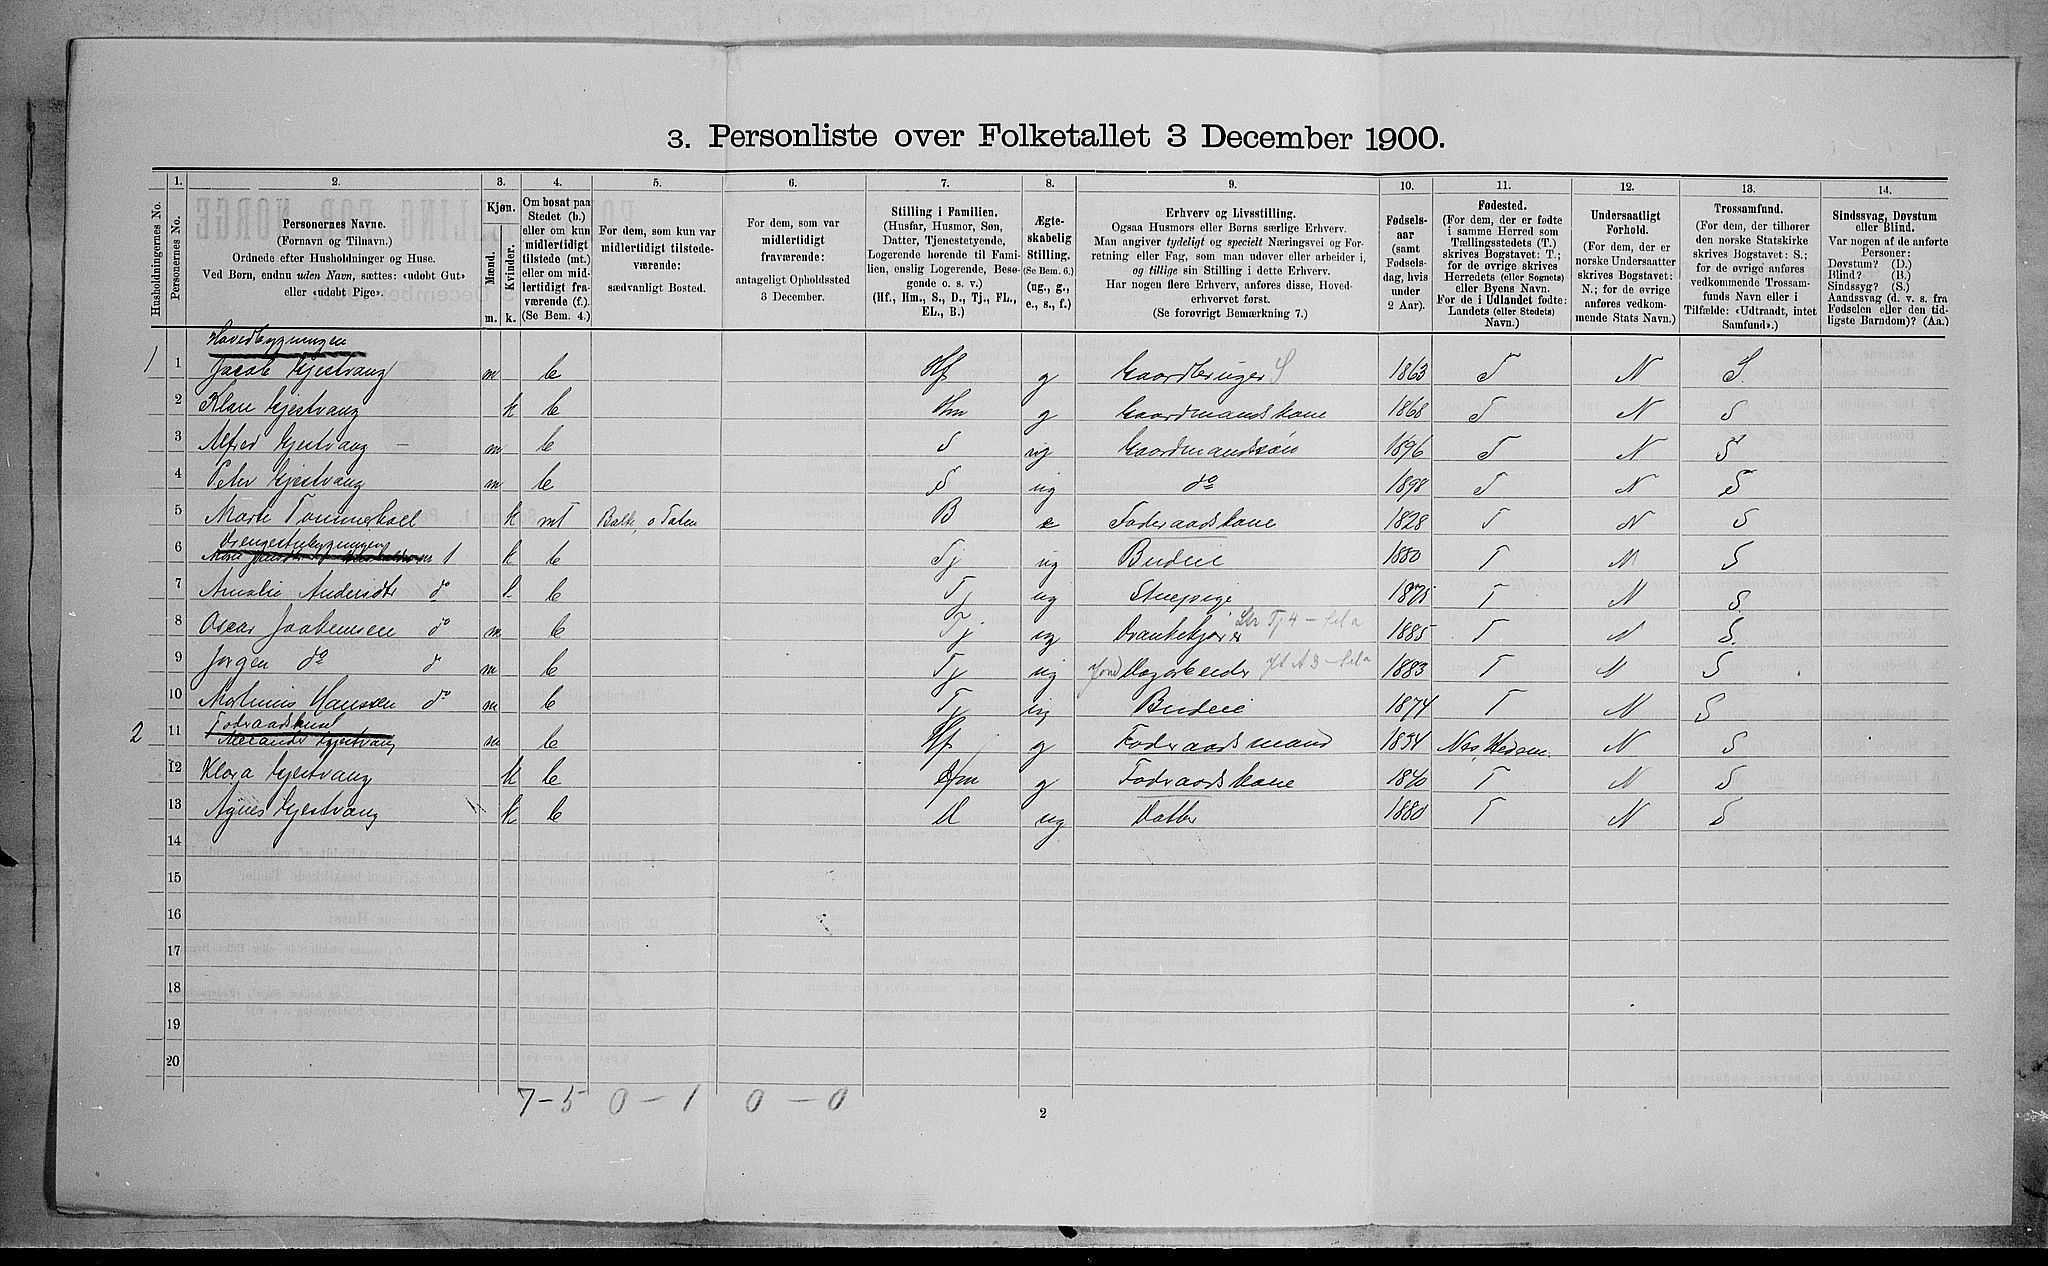 3. Personliste over Folketallet 3 December 1900.
Husholdningernes No.
1. Personernes No.
2. Personernes Navne.
(Fornavn og Tilnavn.)
Ordnede efter Husholdninger og Huse.
Ved Børn, endnu uden Navn, sættes: «udøbt Gut»
eller «udøbt Pige».
3. Kjøn.
Mænd. m.
Kvinder. k.
4. Om bosat paa
Stedet (b.)
eller om kun
midlertidigt
tilstede (mt.)
eller om mid-
lertidigt fra-
værende (f.).
(Se Bem. 4.)
5. For dem, som kun var
midlertidigt tilstede-
værende:
sædvanligt Bosted.
6. For dem, som var
midlertidigt
fraværende:
antageligt Opholdssted
3 December.
7. Stilling i Familien.
(Husfar, Husmor, Søn,
Datter, Tjenestetyende,
Logerende hørende til Fami-
lien, enslig Logerende, Besø-
gende o. s. v.)
(Hf., Hm., S., D., Tj., FL.,
EL., B.)
8. Ægte-
skabelig
Stilling.
(Se Bem. 6.)
(ug., g.,
e., s., f.)
9. Erhverv og Livsstilling.
Ogsaa Husmors eller Børns særlige Erhverv.
Man angiver tydeligt og specielt Næringsvei og For-
retning eller Fag, som man udøver eller arbeider i,
og tillige sin Stilling i dette Erhverv.
Har nogen flere Erhverv, anføres disse, Hoved-
erhvervet først.
(Se forøvrigt Bemærkning 7.)
10. Fødsels-
aar
(samt
Fødsels-
dag, hvis
under
2 Aar).
11. Fødested.
(For dem, der er fødte
i samme Herred som
Tællingsstedets (T.)
skrives Bogstavet: T.;
for de øvrige skrives
Herredets (eller Sognets)
eller Byens Navn.
For de i Udlandet fødte:
Landets (eller Stedets)
Navn.)
12. Undersaatligt
Forhold.
(For dem, der er
norske Undersaatter
skrives Bogstavet:
N.; for de øvrige
anføres vedkom-
mende Stats Navn.)
13. Trossamfund.
(For dem, der tilhører
den norske Statskirke
skrives Bogstavet: S.;
for de øvrige anføres
vedkommende Trossam-
funds Navn eller i
Tilfælde: «Udtraadt, intet
Samfund».)
14. Sindssvag, Døvstum
eller Blind.
Var nogen af de anførte
Personer:
Døvstum? (D.)
Blind? (B.)
Sindssyg? (S.)
Aandssvag (d. v. s. fra
Fødselen eller den tid-
ligste Barndom)? (Aa.)
Hovedbygningen
1 1 Jacob Gjestvang m b Hf g Gaardbruger S 1863 T N S.
2 Klara Gjestvang k b Hm g Gaardmandskone 1868 T N S
3 Alfred Gjestvang m b S ug Gaardmandssøn 1896 T N S
4 Peter Gjestvang m b S ug do 1898 T N S
5 Marte Tommerhoel k mT B e Foderaadskone 1828 T N S
Drengestubygningen
6 1 k b Tj ug Budeie 1880 T N S
7 Amalie Andersdtr do k b Tj ug Stuepige 1875 T N S
8 Oscar Jacobensen do m b Tj ug 1885 T N S
9 Jørgen do do m b Tj ug 1883 T N S
10 Martinius Hansen do m b Tj ug Budeie 1874 T N S
Foderaadshuset
2 11 Gjestvang m b Hf g Foderaadsmand 1834 Nes, Hedem. N S
12 Klara Gjestvang k b Hm g Foderaadskone 1840 T N S
13 Agnes Gjestvang k b D ug Datter 1880 T N S
14
15
16
17
18
19
20
7-5 0-1 0-0
2